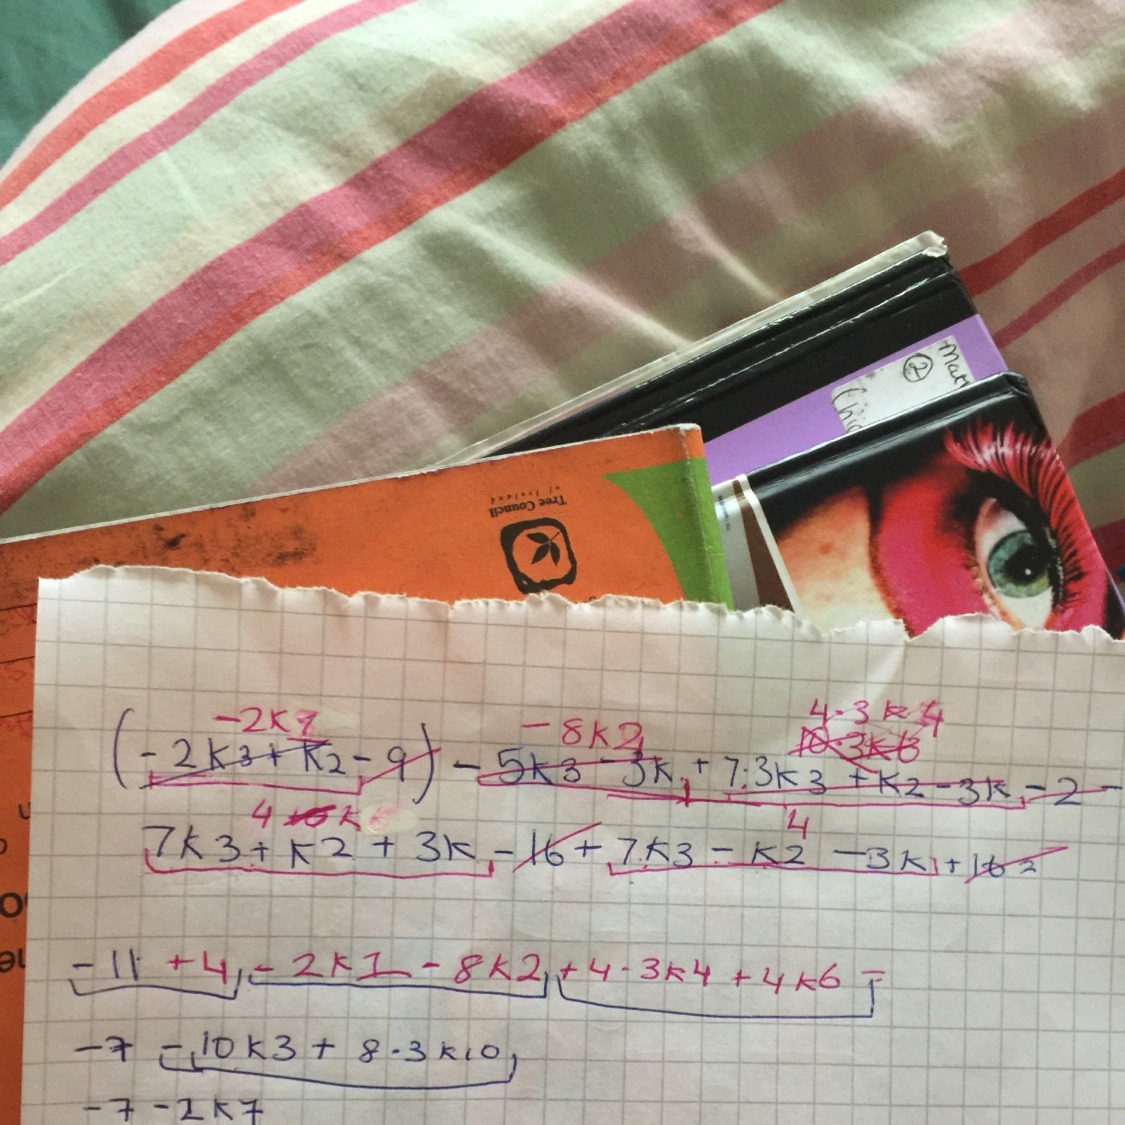 ②
Tree Council
of Ireland
-2K7
-8K2
4.3K4
(-2K3+K2-9) - 5K3-3K+7.3K3+K2-3K-2-
4
4
7K3+K2+3K-16+7K3-K2-3K+16=
-11+4-2K1-8K2+4.3K4+4K6=
-7-10K3+8.3K10
-7-2K7